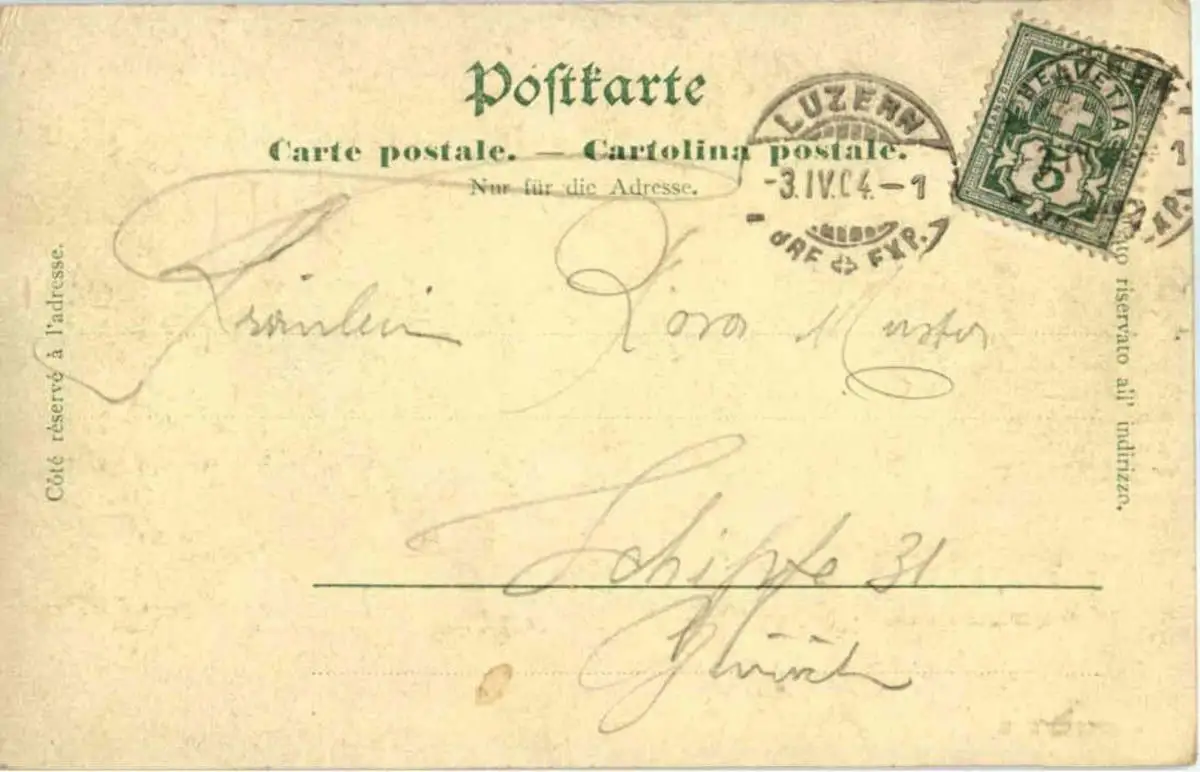 Postkarte
Carte postale. — Cartolina postale.
Nur für die Adresse.
LUZERN
-3.IV.04.-1
BRF EXP.
HELVETIA
5
Côté réservé à l'adresse.
riservato all' indirizzo.
Fräulein
Schipfe 31
Zürich